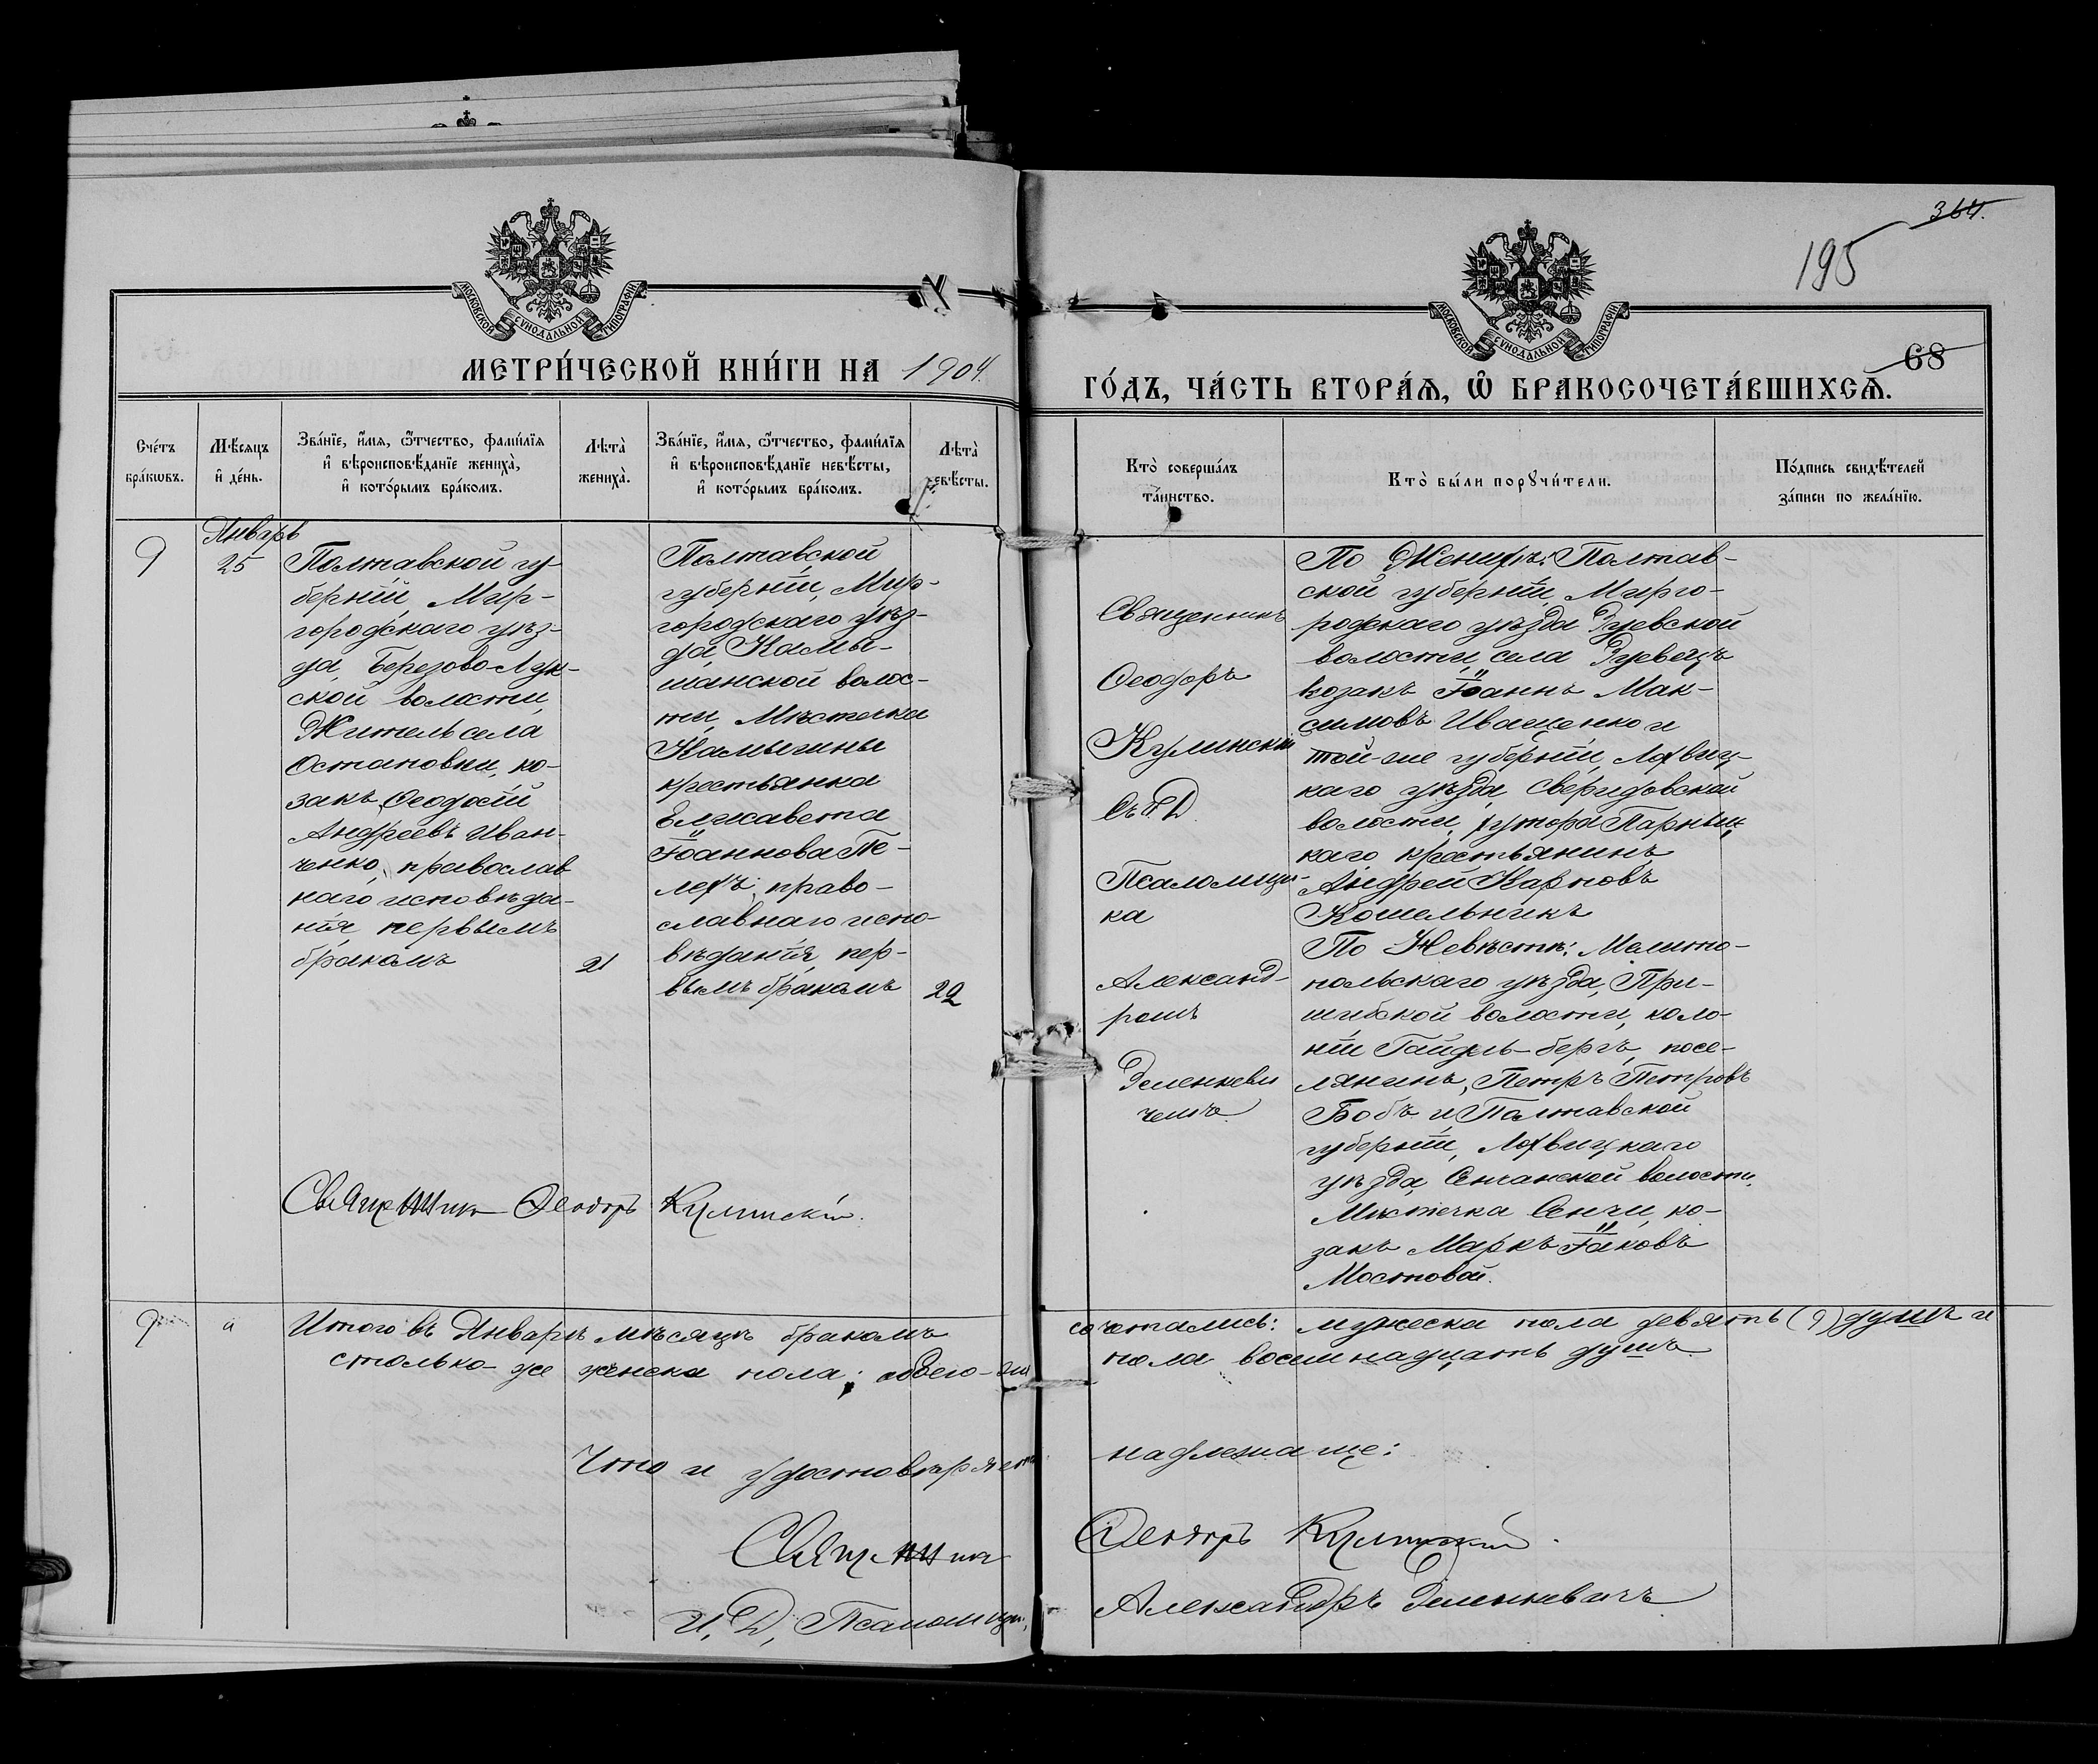 364.
195
МОСКОВСКОЙ СѴНОДАЛЬНОЙ ТИПОГРАФІИ
МОСКОВСКОЙ СѴНОДАЛЬНОЙ ТИПОГРАФІИ
МЕТРИ́ЧЕСКОЙ КНИ́ГИ НА 1904.
68
ГО́ДЪ, ЧА́СТЬ ВТОРА́Я, Ѡ҆ БРАКОСОЧЕТА́ВШИХСѦ.
Сче́тъ
бра́кѡвъ.
Мѣ́сяцъ
и҆ де́нь.
Зва́нїе, и҆́мя, ѻ҆́тчество, фами́лїя
и҆ вѣроисповѣ́данїе жениха̀,
и҆ кото́рымъ бра́комъ.
Лѣта̀
жениха̀.
Зва́нїе, и҆́мя, ѻ҆́тчество, фами́лїя
и҆ вѣроисповѣ́данїе невѣ́сты,
и҆ кото́рымъ бра́комъ.
Лѣта̀
невѣ́сты.
Кто̀ соверша́лъ
та́инство.
Кто̀ бы́ли порꙋчи́тели.
По́дпись свидѣ́телей
за́писи по жела́нїю.
9
Январь
25
Полтавской гу
берніи, Мир-
городскаго уѣз-
да, Березово-Лук-
ской волости,
Житель села
Остаповки, ко-
закъ Ѳеодосій
Андреевъ Иван-
ченко, православ
наго исповѣда-
нія, первымъ
бракомъ
21
Полтавской
губерніи, Мир-
городскаго уѣз-
да, Камы-
шанской волос-
ти, Мѣстечка
Камышны
крестьянка
Елисавета
Іоаннова Пе-
лехъ, право-
славнаго испо-
вѣданія, пер-
вымъ бракомъ
22
Священникъ
Ѳеодоръ
Кулинскій
Съ И. Д.
Псаломщи-
ка
Александ-
ромъ
Зеленкеви
чемъ
По Женихѣ: Полтав-
ской губерніи, Мирго-
родскаго уѣзда Зуевской
волости, села Зуевецъ
козакъ Іоаннъ Мак-
симовъ Иващенко и
той-же губерніи, Лохвиц-
каго уѣзда, Свиридовской
волости, хутора
каго крестьянинъ
Андрей Карповъ
Кошельникъ
По Невѣстѣ: Мелито-
польскаго уѣзда, При-
шибской волости, коло-
ніи Гайдель-бергъ, посе-
лянинъ, Петръ Петровъ
Бобъ и, Полтавской
губерніи, Лохвицкаго
уѣзда, Сенчанской волости,
Мѣстечка Сенчи, ко-
закъ Маркъ Іаковъ
Мостовой.
Священникъ Ѳеодоръ Кулинскій.
9
а
Итого въ Январѣ мѣсяцѣ бракомъ сочетались: мужеска пола девять (9) душъ и
столько-же женска пола; обоего-же пола восемнадцать душъ.
Что и удостовѣряемъ надлежаще:
Священникъ Ѳеодоръ Кулинскій.
И. Д. Псаломщ. Александръ Зеленкевичъ